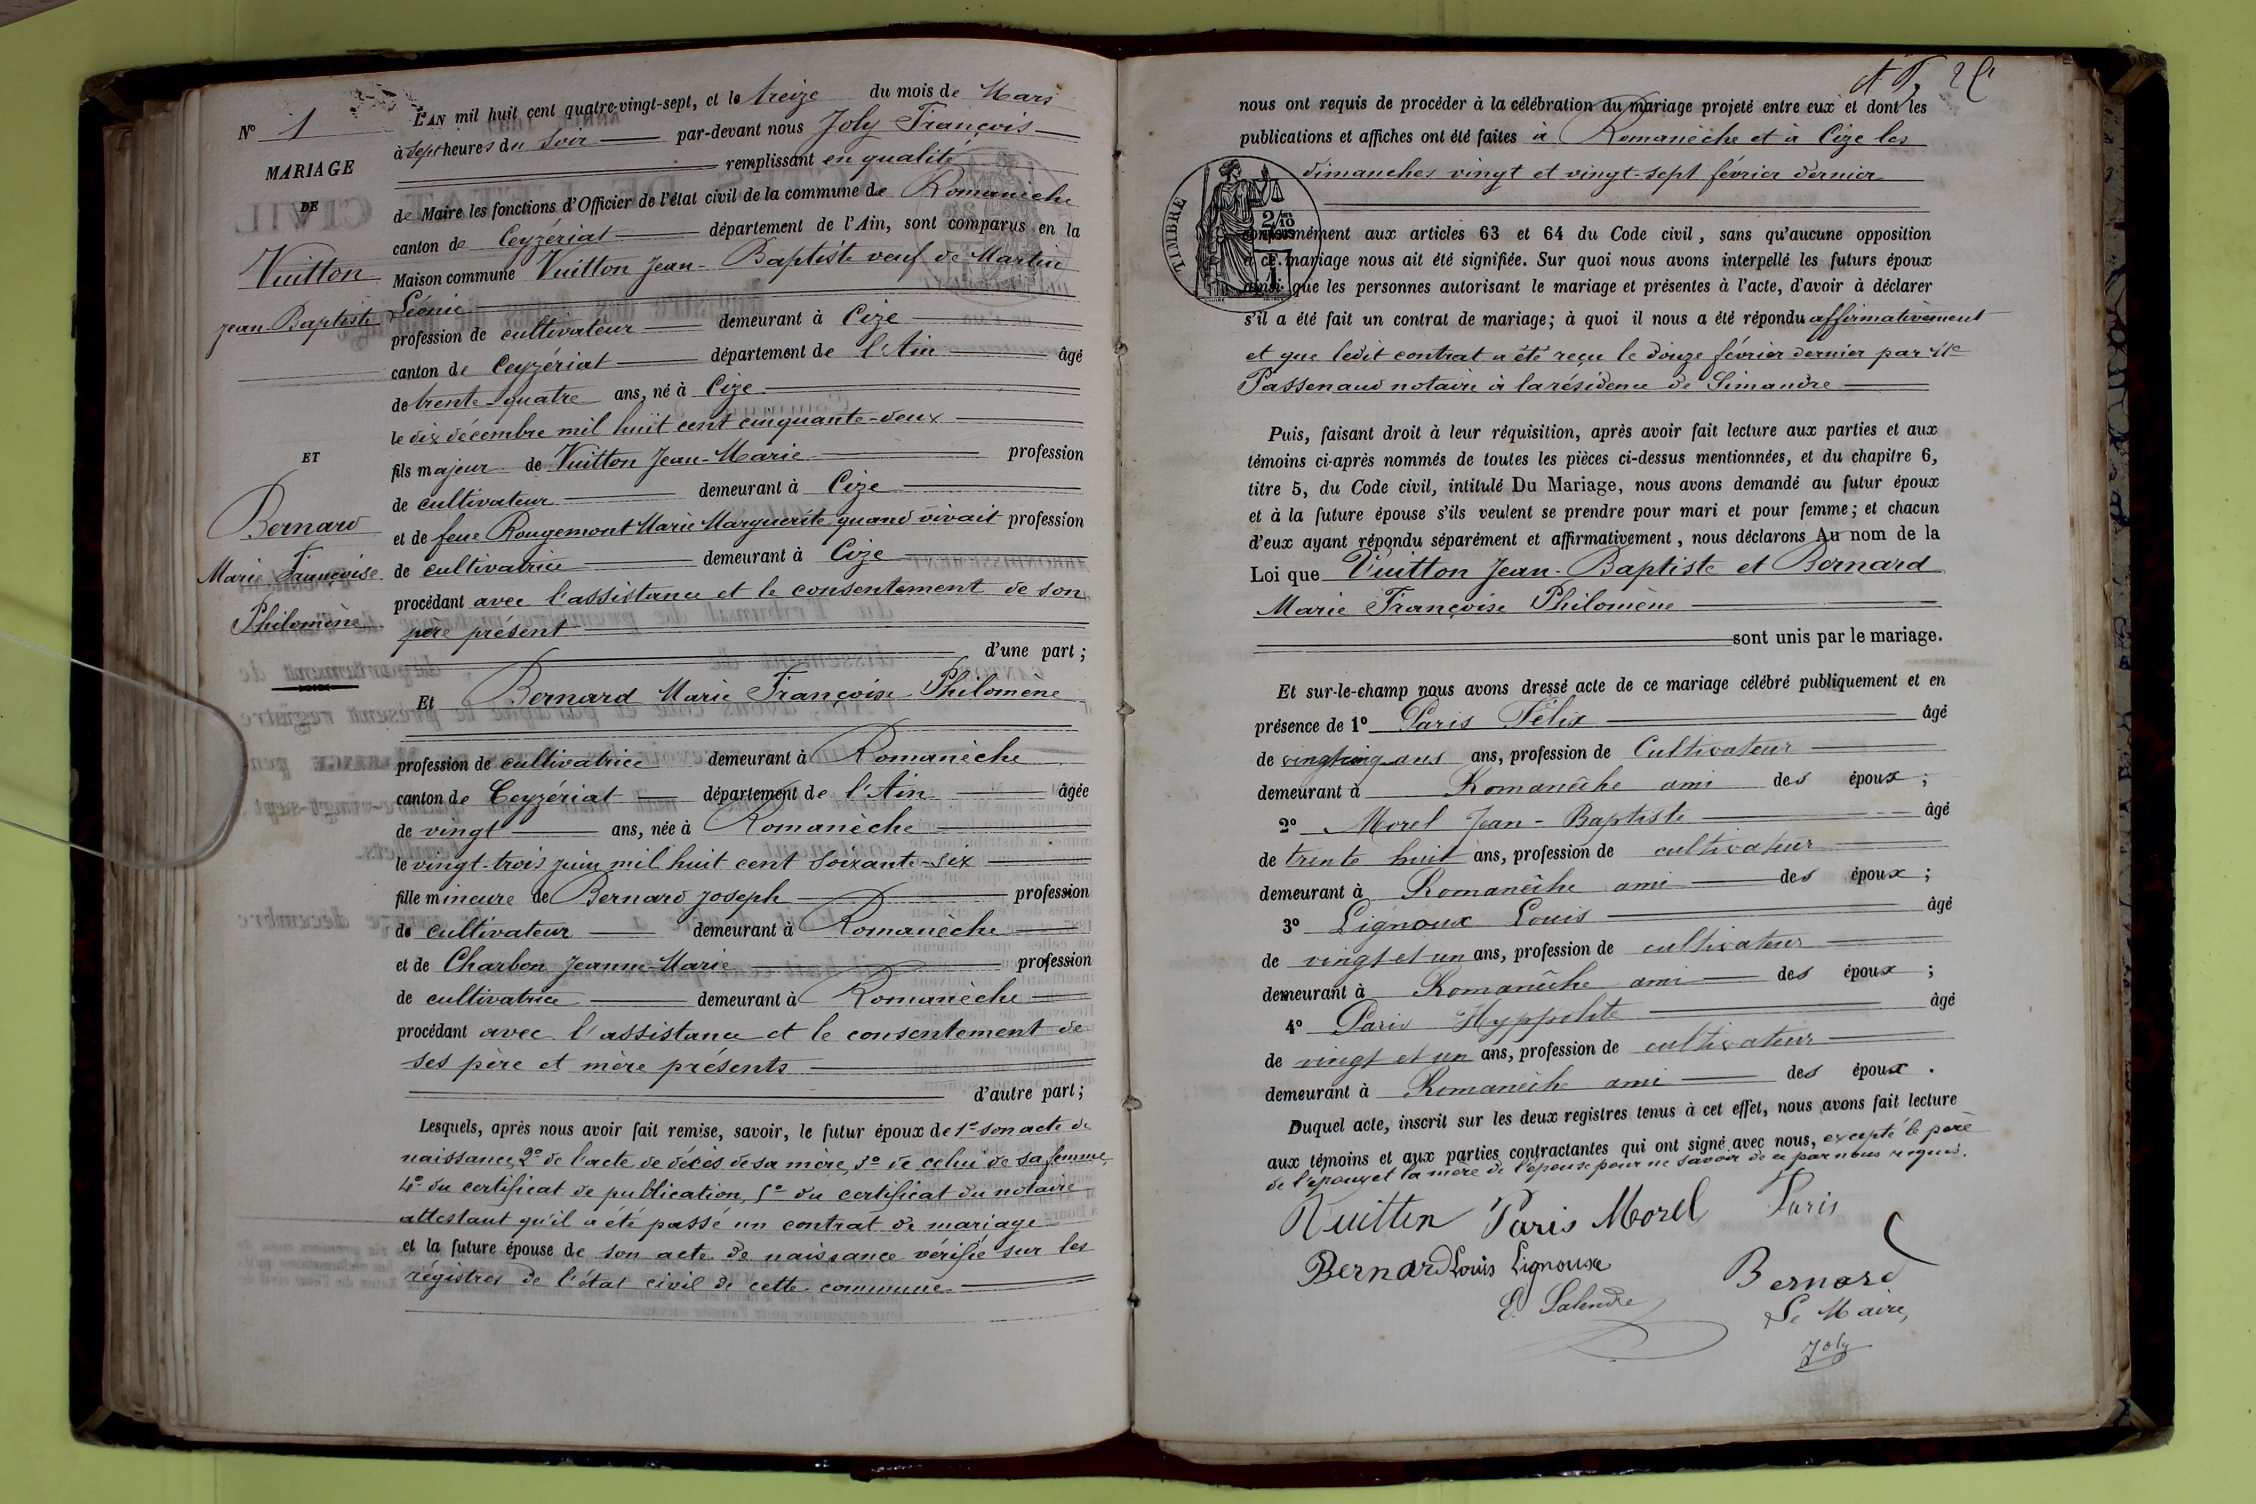 N° 1
MARIAGE
DE
Vuitton
Jean Baptiste
ET
Bernard
Marie Françoise
Philomène
L'AN mil huit cent quatre-vingt-sept, et le treize du mois de Mars
à sept heures du soir par-devant nous Joly François
remplissant en qualité
de Maire les fonctions d'Officier de l'état civil de la commune de Romanèche
canton de Ceyzériat département de l'Ain, sont comparus en la
Maison commune Vuitton Jean-Baptiste veuf de Martin
Léonie
profession de cultivateur demeurant à Cize
canton de Ceyzériat département de l'Ain âgé
de trente-quatre ans, né à Cize
le dix décembre mil huit cent cinquante-deux
fils majeur de Vuitton Jean-Marie profession
de cultivateur demeurant à Cize
et de feue Rougemont Marie Marguerite quand vivait profession
de cultivatrice demeurant à Cize
procédant avec l'assistance et le consentement de son
père présent
d'une part;
Et Bernard Marie Françoise Philomène
profession de cultivatrice demeurant à Romanèche
canton de Ceyzériat département de l'Ain âgée
de vingt ans, née à Romanèche
le vingt-trois juin mil huit cent soixante-six
fille mineure de Bernard Joseph profession
de cultivateur demeurant à Romanèche
et de Charbon Jeanne-Marie profession
de cultivatrice demeurant à Romanèche
procédant avec l'assistance et le consentement de
ses père et mère présents
d'autre part;
Lesquels, après nous avoir fait remise, savoir, le futur époux de 1° son acte de
naissance, 2° de l'acte de décès de sa mère, 3° de celui de sa femme,
4° du certificat de publication, 5° du certificat du notaire
attestant qu'il a été passé un contrat de mariage
et la future épouse de son acte de naissance vérifié sur les
régistres de l'état civil de cette commune
nous ont requis de procéder à la célébration du mariage projeté entre eux et dont les
publications et affiches ont été faites à Romanèche et à Cize les
dimanches vingt et vingt-sept février dernier
TIMBRE
2/10
conformément aux articles 63 et 64 du Code civil, sans qu'aucune opposition
à ce mariage nous ait été signifiée. Sur quoi nous avons interpellé les futurs époux
ainsi que les personnes autorisant le mariage et présentes à l'acte, d'avoir à déclarer
s'il a été fait un contrat de mariage; à quoi il nous a été répondu affirmativement
et que ledit contrat a été reçu le douze février dernier par Me
Passenaud notaire à la résidence de Simandre
Puis, faisant droit à leur réquisition, après avoir fait lecture aux parties et aux
témoins ci-après nommés de toutes les pièces ci-dessus mentionnées, et du chapitre 6,
titre 5, du Code civil, intitulé Du Mariage, nous avons demandé au futur époux
et à la future épouse s'ils veulent se prendre pour mari et pour femme; et chacun
d'eux ayant répondu séparément et affirmativement, nous déclarons Au nom de la
Loi que Vuitton Jean-Baptiste et Bernard
Marie Françoise Philomène
sont unis par le mariage.
Et sur-le-champ nous avons dressé acte de ce mariage célébré publiquement et en
présence de 1° Paris Félix âgé
de vingt cinq ans ans, profession de Cultivateur
demeurant à Romanèche ami des époux;
2° Morel Jean-Baptiste âgé
de trente huit ans, profession de cultivateur
demeurant à Romanèche ami des époux;
3° Lignoux Louis âgé
de vingt et un ans, profession de cultivateur
demeurant à Romanèche ami des époux;
4° Paris Hyppolite âgé
de vingt et un ans, profession de cultivateur
demeurant à Romanèche ami des époux.
Duquel acte, inscrit sur les deux registres tenus à cet effet, nous avons fait lecture
aux témoins et aux parties contractantes qui ont signé avec nous, excepté le père
de l'époux et la mère de l'épouse pour ne savoir de ce par nous requis.
Vuitton Paris Morel Paris
Bernard Louis Lignoux Bernard
E. Salendre Le Maire,
Joly